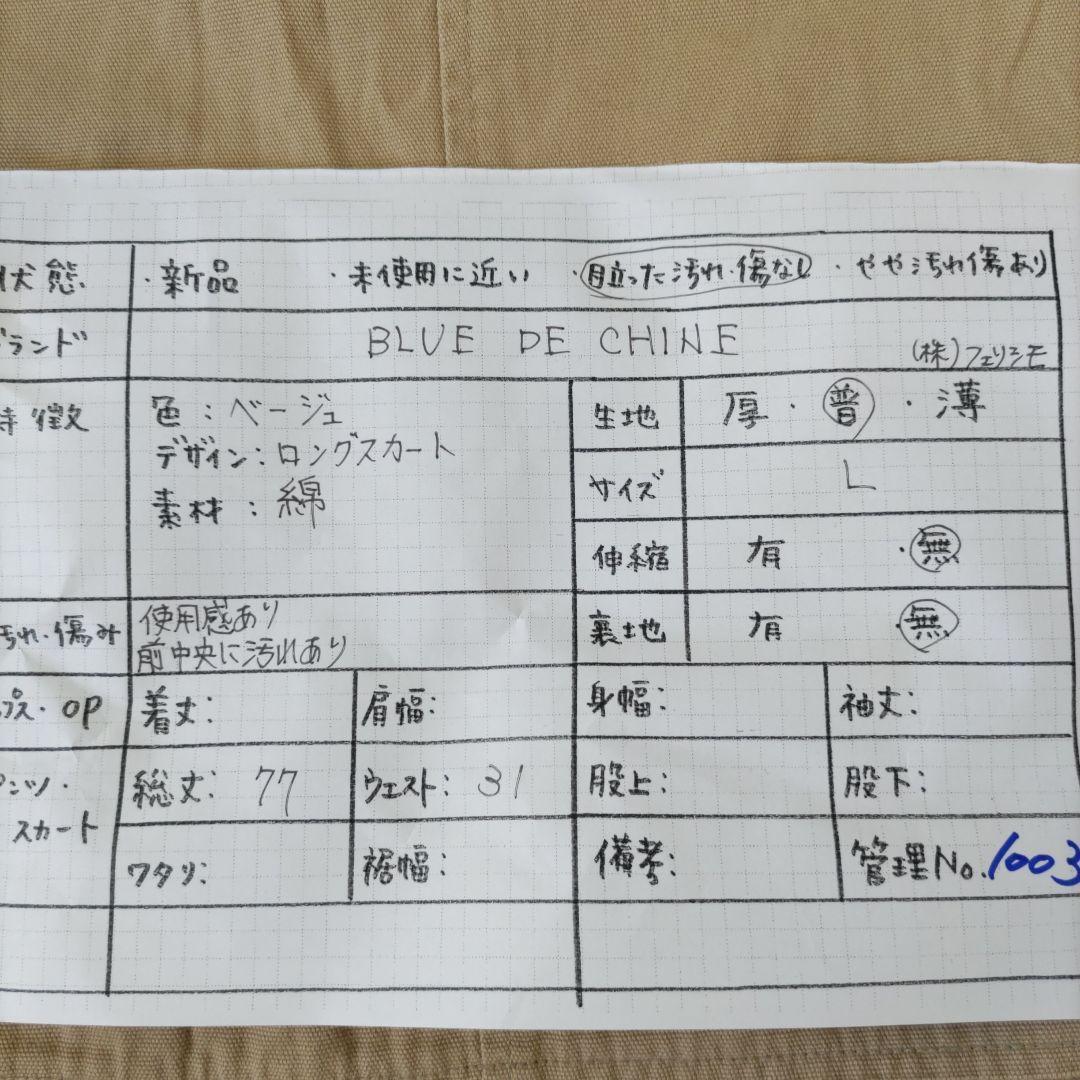 状態 ・新品 ・未使用に近い ・目立った汚れ・傷なし ・やや汚れ傷あり
ブランド BLUE DE CHINE (株)フェリシモ
特徴 色：ベージュ
デザイン：ロングスカート
素材：綿
生地 厚・普・薄
サイズ L
伸縮 有 ・無
裏地 有 ・無
汚れ・傷み 使用感あり
前中央に汚れあり
プス・OP 着丈： 肩幅： 身幅： 袖丈：
パンツ・
スカート
総丈：77 ウエスト：31 股上： 股下：
ワタリ： 裾幅： 備考： 管理No.1003